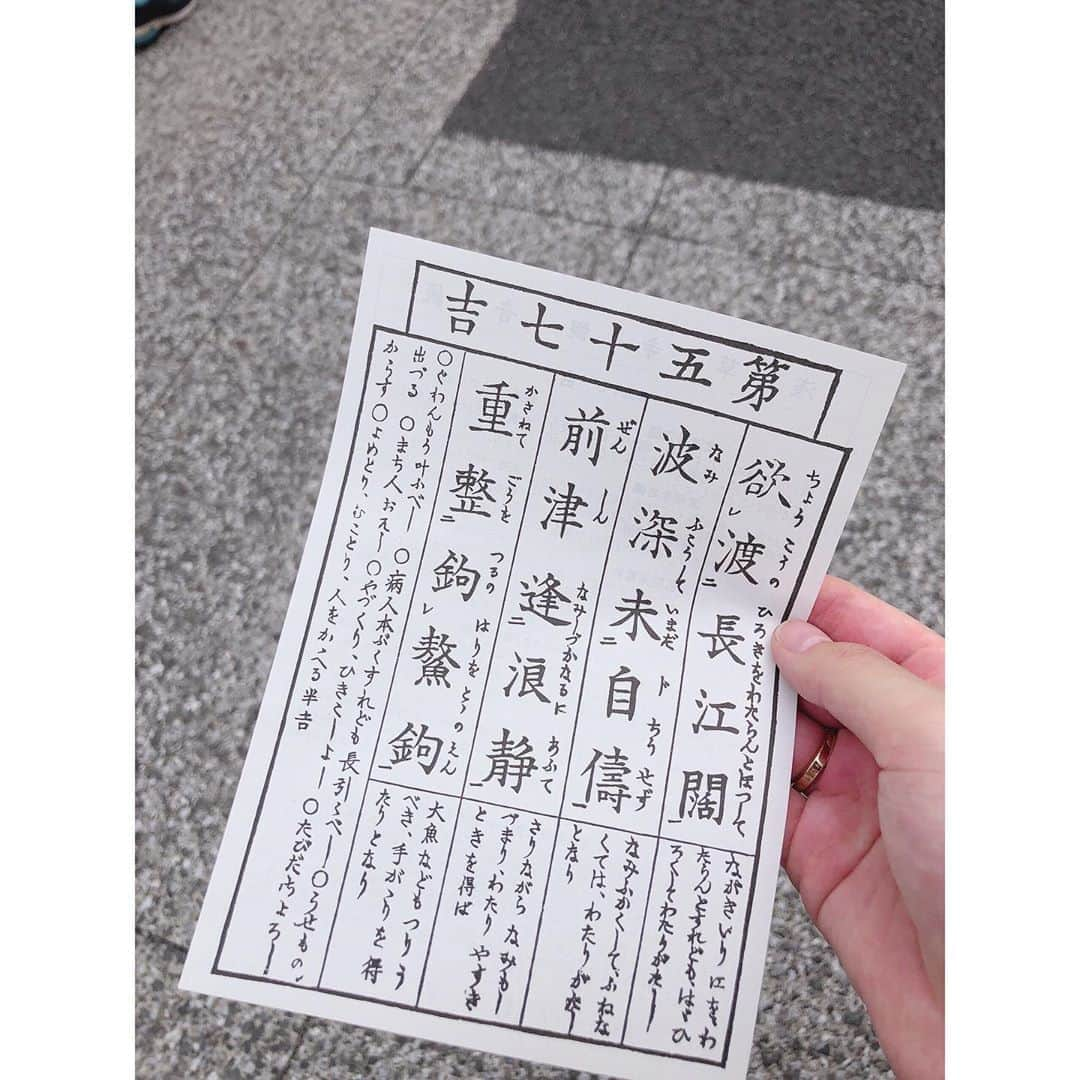 第五十七吉
欲渡長江闊
ちょうこうのひろきをわたらんとほつして
ながきいり江をわ
たらんとすれどもはゞひ
ろくてわたりがたし
波深未自儔
なみふこうしていまだトちうせず
なみふかくしてふねな
くては、わたりがたし
となり
前津逢浪静
ぜんしんなみしづかなるにあふて
さりながらなみもし
づまり、わたりやすき
ときを得ば
重整鉤鰲鉤
かさねてごうをつるのはりをとゝのえん
大魚などもつりう
べき、手がゝりを得
たりとなり
〇ぐわんもう叶ふべし 〇病人本ぶくすれども長引くべし 〇うせもの
出づる 〇まち人おそし 〇やづくり、ひきこしよし 〇たびだちよろし
からず 〇よめとり、むことり、人をかゝへる半吉